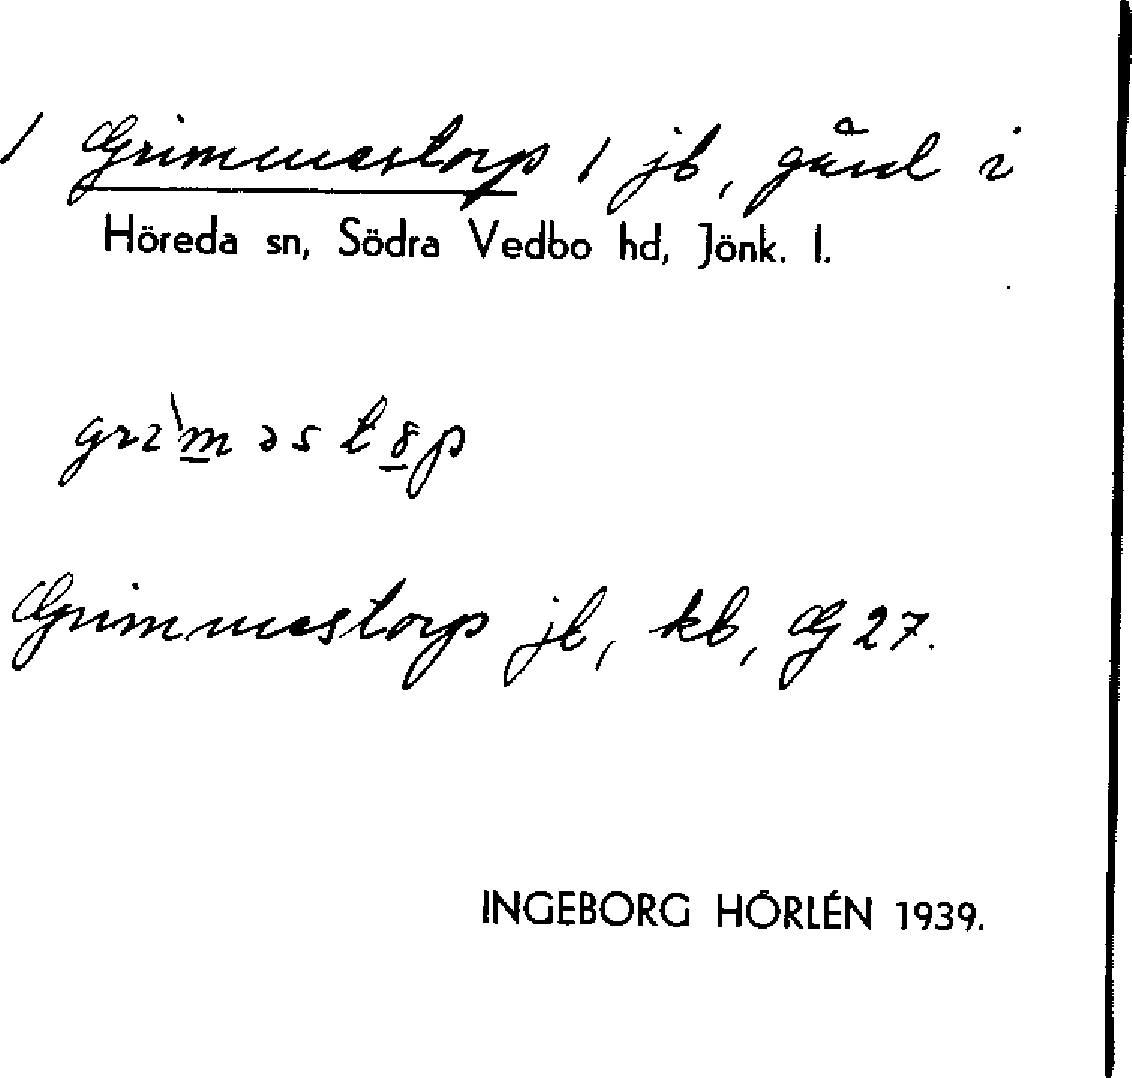 / Grimmestorp / jb, gård i
Höreda sn, Södra Vedbo hd, Jönk. l.
grı̀m əstȣp
Grimmestorp jb, kb, G 27.
INGEBORG HÖRLÉN 1939.